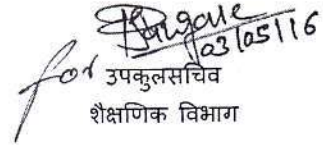 03/05/16
for उपकुलसचिव
शैक्षणिक विभाग